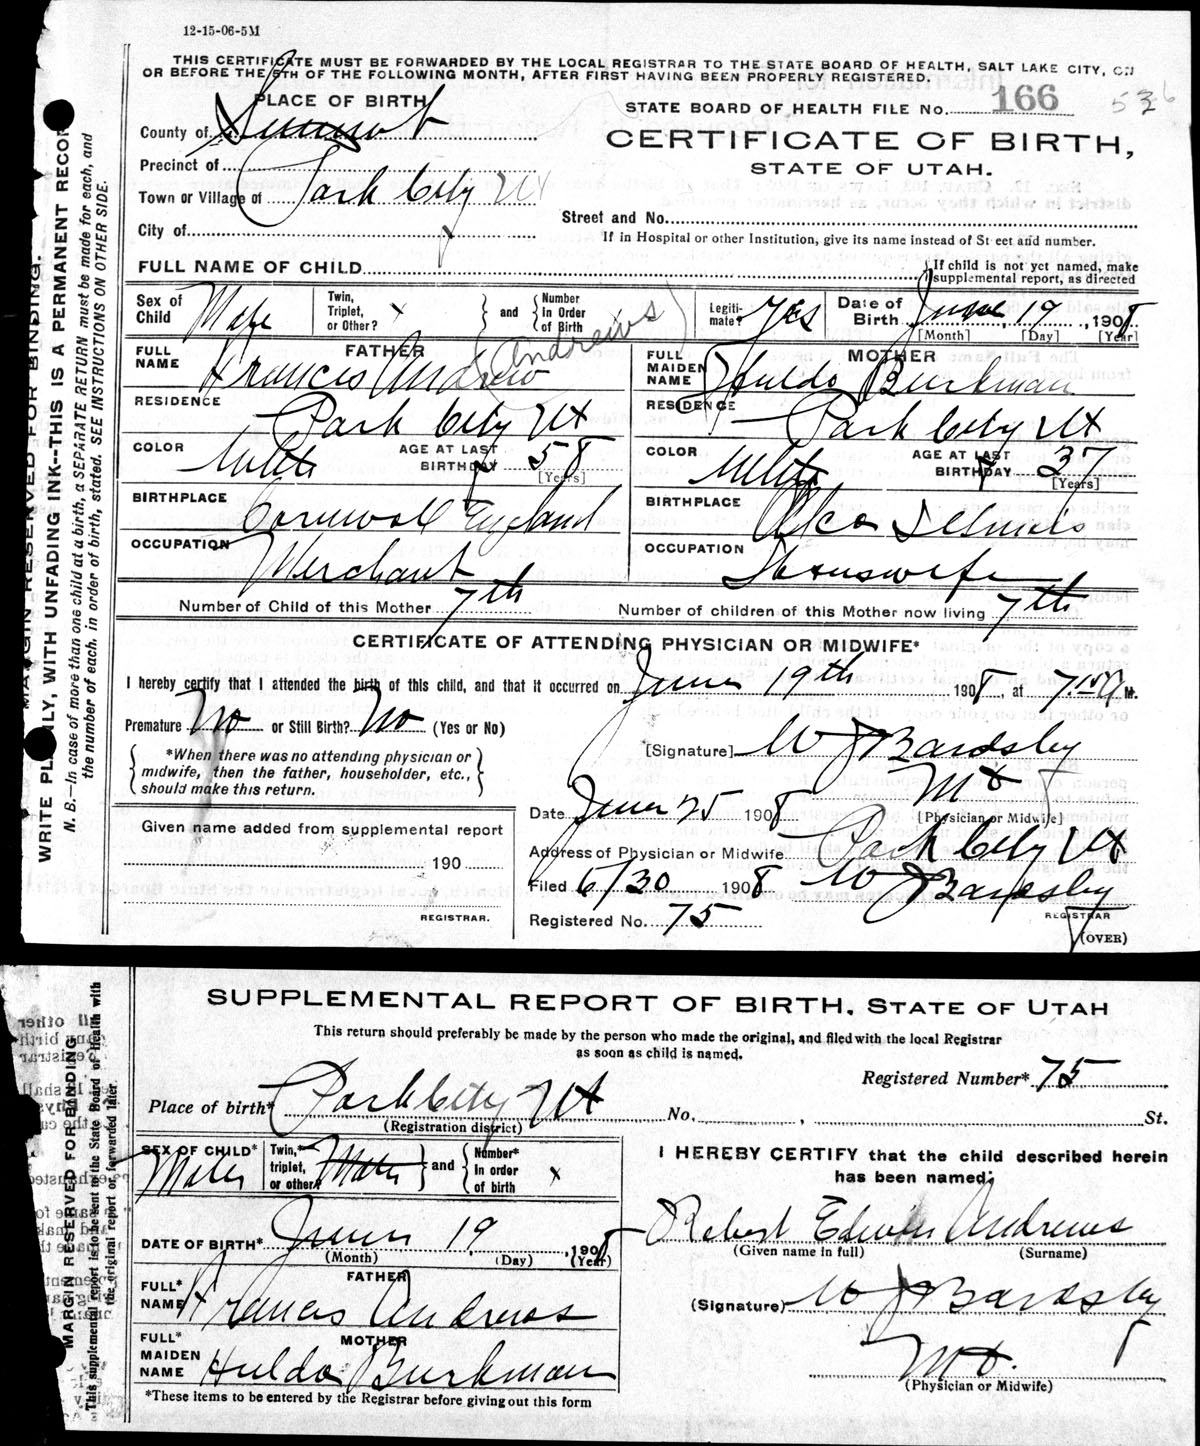 12-15-06-5M
THIS CERTIFICATE MUST BE FORWARDED BY THE LOCAL REGISTRAR TO THE STATE BOARD OF HEALTH, SALT LAKE CITY, ON
OR BEFORE THE 5TH OF THE FOLLOWING MONTH, AFTER FIRST HAVING BEEN PROPERLY REGISTERED.
PLACE OF BIRTH
STATE BOARD OF HEALTH FILE No. 166
County of Summit
CERTIFICATE OF BIRTH,
STATE OF UTAH.
Precinct of
Town or Village of Park City Ut
Street and No.
City of
If in Hospital or other Institution, give its name instead of Street and number.
FULL NAME OF CHILD
If child is not yet named, make supplemental report, as directed
Sex of Child Male Twin, Triplet, or Other? x and Number in Order of Birth Legitimate? Yes Date of Birth June 19, 1908
[Month] [Day] [Year]
FATHER
FULL NAME Francis Andrew (Andrews)
MOTHER
FULL MAIDEN NAME Hulda Burkman
RESIDENCE Park City Ut
RESIDENCE Park City Ut
COLOR White AGE AT LAST BIRTHDAY 58 [Years]
COLOR White AGE AT LAST BIRTHDAY 37 [Years]
BIRTHPLACE Cornwall England
BIRTHPLACE Illinois
OCCUPATION Merchant
OCCUPATION Houswife
Number of Child of this Mother 7th
Number of children of this Mother now living 7th
CERTIFICATE OF ATTENDING PHYSICIAN OR MIDWIFE*
I hereby certify that I attended the birth of this child, and that it occurred on June 19th 1908, at 7.15 A M.
Premature No or Still Birth? No (Yes or No)
[Signature] W J Bardsby
MD
[Physician or Midwife]
*When there was no attending physician or
midwife, then the father, householder, etc.,
should make this return.
Date June 25 1908
Given name added from supplemental report
190
REGISTRAR.
Address of Physician or Midwife Park City Ut
Filed 6/30 1908 W J Bardsby
REGISTRAR
Registered No. 75
(OVER)
MARGIN RESERVED FOR BINDING.
WRITE PLAINLY, WITH UNFADING INK--THIS IS A PERMANENT RECORD
N. B.—In case of more than one child at a birth, a SEPARATE RETURN must be made for each, and
the number of each, in order of birth, stated. SEE INSTRUCTIONS ON OTHER SIDE.
SUPPLEMENTAL REPORT OF BIRTH, STATE OF UTAH
This return should preferably be made by the person who made the original, and filed with the local Registrar
as soon as child is named.
Registered Number* 75
Place of birth* Park City Ut No. , St.
(Registration district)
SEX OF CHILD* Male Twin,* triplet, or other? Male and Number* in order of birth x
I HEREBY CERTIFY that the child described herein
has been named:
Robert Edwin Andrews
(Given name in full) (Surname)
DATE OF BIRTH* June 19, 1908
(Month) (Day) (Year)
FATHER
FULL* NAME Francis Andrews
(Signature) W J Bardsby
MD.
(Physician or Midwife)
MOTHER
FULL* MAIDEN NAME Hulda Burkman
*These items to be entered by the Registrar before giving out this form
MARGIN RESERVED FOR BINDING
This supplemental report is to be sent to the State Board of Health with
the original report or forwarded later.